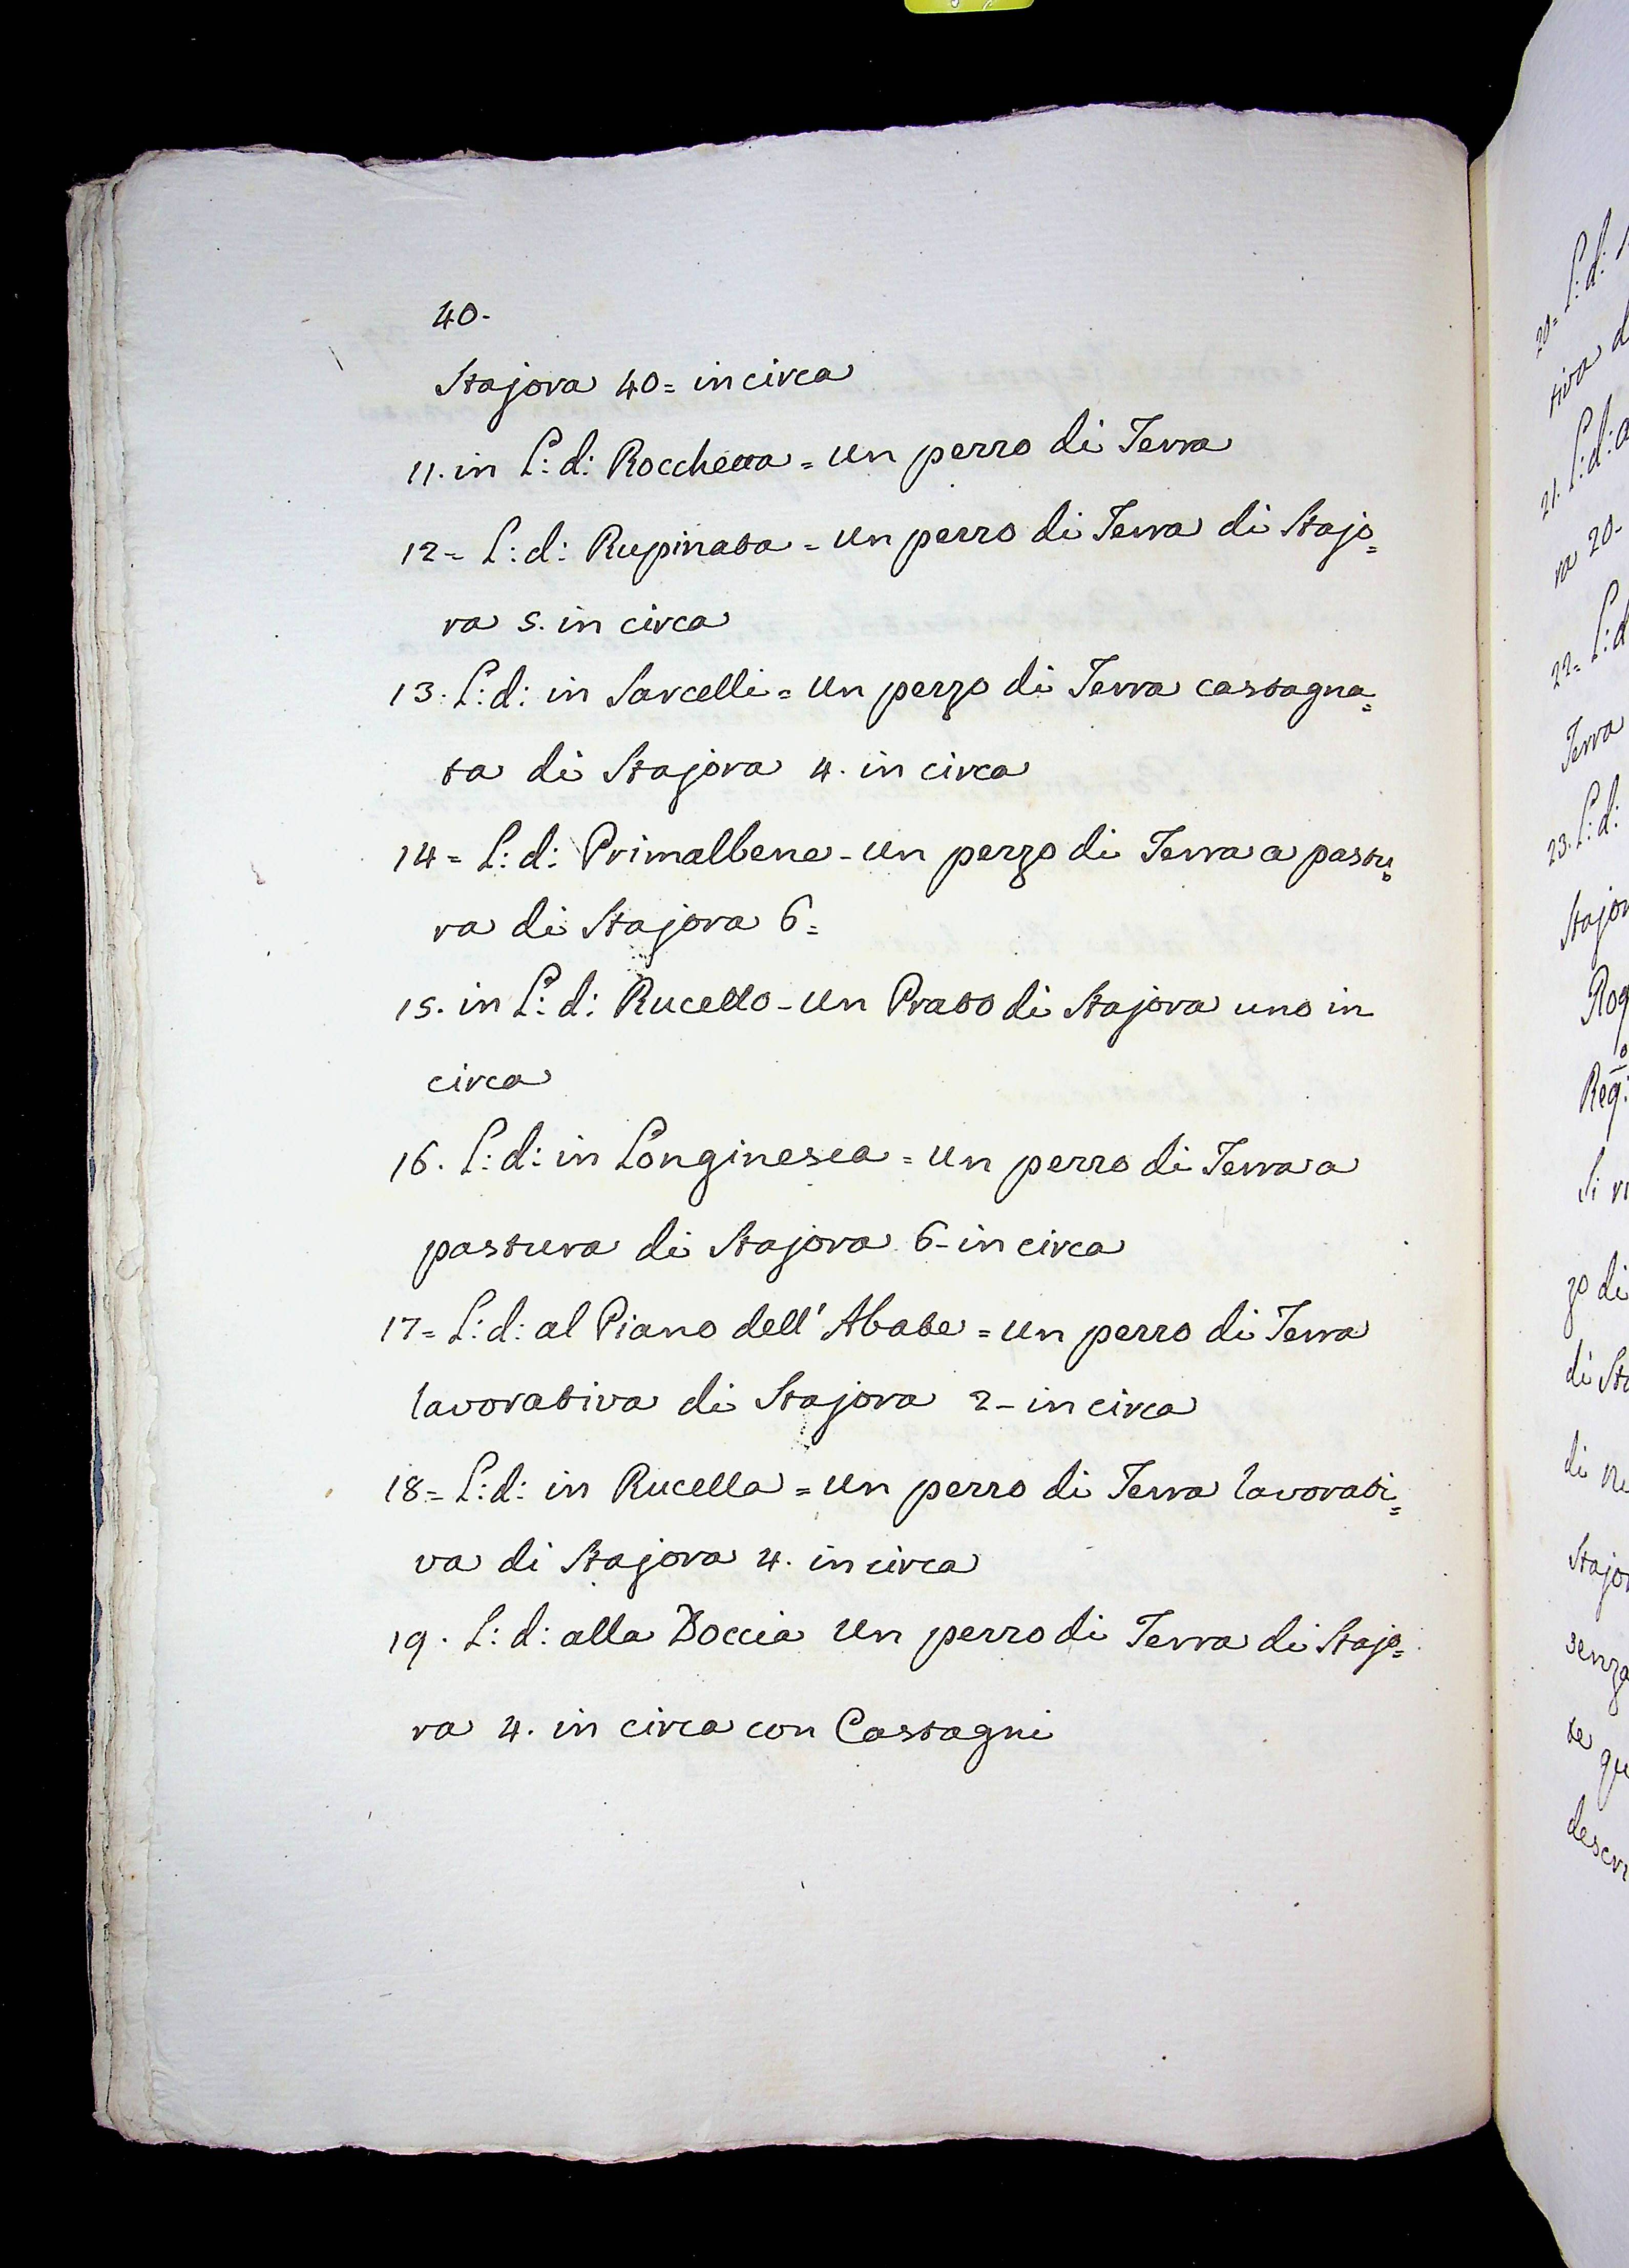 40.
Stajora 40= in circa
11. in L: d: Rocchetta = un pezzo di Terra
12= L: d: Rupinata = un pezzo di Terra di Stajo=
ra 5. in circa
13. L: d: in Sarcelli = un pezzo di Terra castagna=
ta di Stajora 4. in circa
14= L: d: Primalbene - un pezzo di Terra a pastu=
ra di Stajora 6=
15. in L: d: Rucello - un Prato di Stajora uno in
circa
16. L: d: in Longinesca = un pezzo di Terra a
pastura di Stajora 6- in circa
17= L: d: al Piano dell' Abate = un pezzo di Terra
lavorativa di Stajora 2- in circa
18= L: d: in Rucella = un pezzo di Terra lavorati=
va di Stajora 4. in circa
19. L: d: alla Doccia un pezzo di Terra di Stajo=
ra 4. in circa con Castagni
20= L: d:
21. L: d:
ra 20-
22= L: d
Terra
23. L: d:
Stajor
Reg:
zo di
di
Stajor
senza
te qu
descri